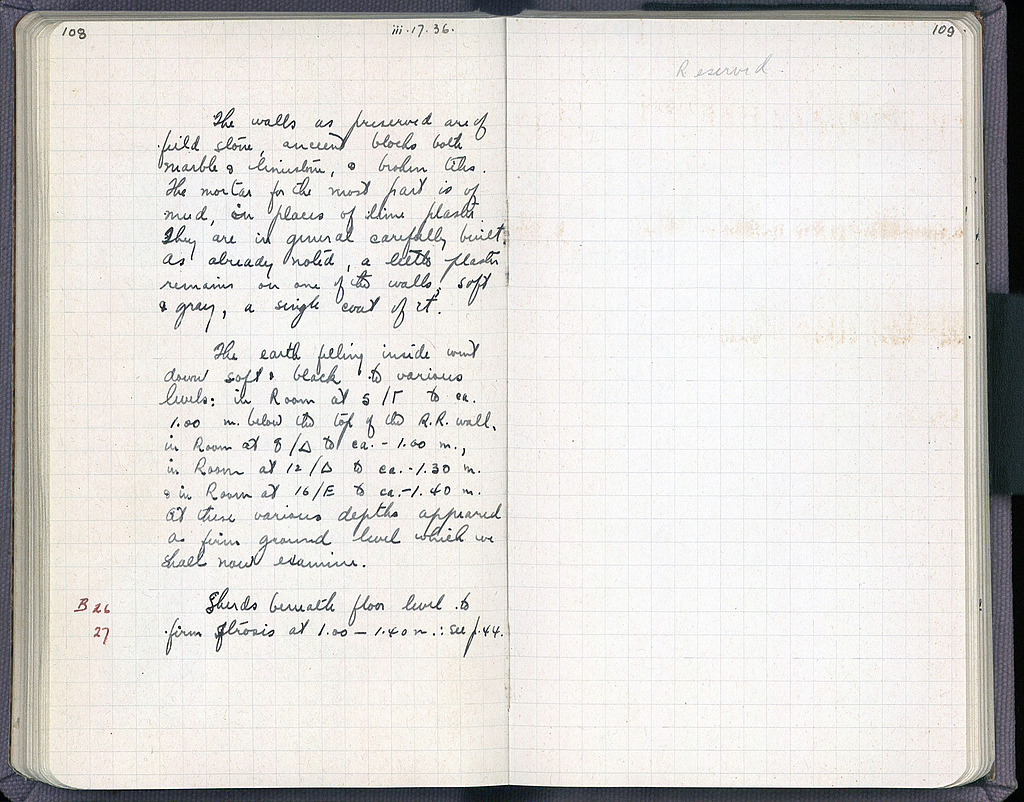 108
iii.17.36.
The walls as preserved are of
field stone, ancient blocks both
marble & limestone, & broken tiles.
The mortar for the most part is of
mud, in places of lime plaster.
They are in general carefully built.
As already noted, a little plaster
remains on one of the walls, soft
& gray, a single coat of it.
The earth filling inside went
down soft & black to various
levels: in Room at 5/Γ to ca.
1.00 m. below the top of the R.R. wall,
in Room at 8/Δ to ca. - 1.00 m.,
in Room at 12/Δ to ca. -1.30 m.
& in Room at 16/E to ca. -1.40 m.
At these various depths appeared
a firm ground level which we
shall now examine.
B 26
27
Sherds beneath floor level to
firm strosis at 1.00 – 1.40 m.: see p. 44.
109
Reserved